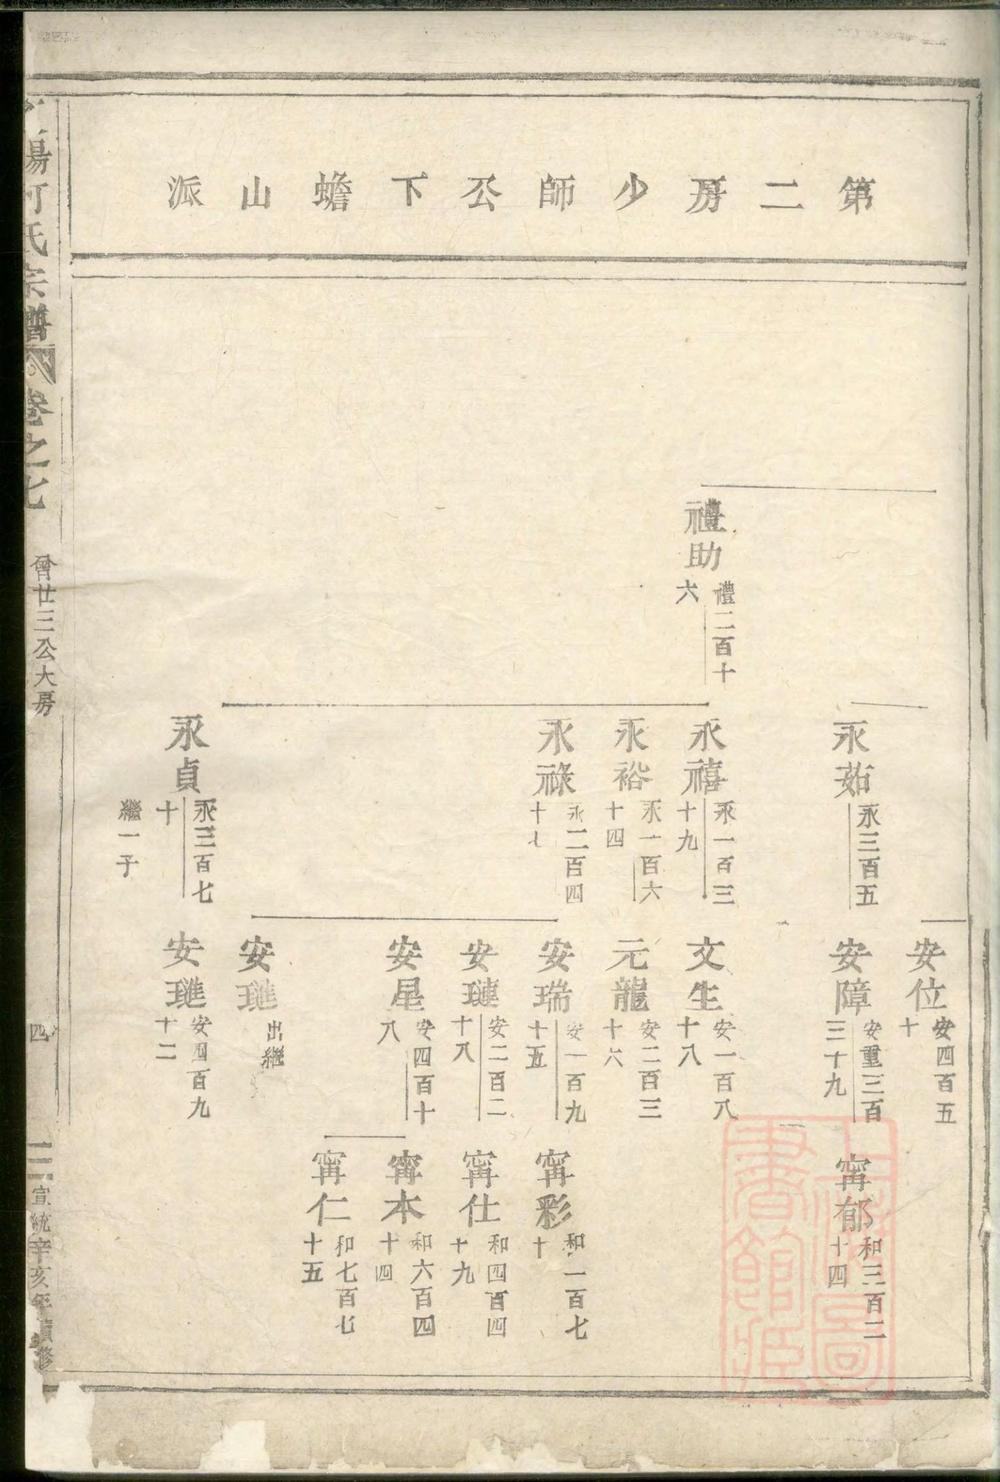 第二房少師公下蟾山派
禮助
禮二百十
六
永茹
永三百五
永禧
永一百三
十九
永裕
永一百六
十四
永祿
永二百四
十七
永貞
永三百七
十
繼一子
安位
安四百五
十
安障
安重三百
三十九
文生
安一百八
十八
元龍
安二百三
十六
安瑞
安一百九
十五
安璉
安二百二
十八
安星
安四百十
八
安璡
出繼
安璡
安四百九
十二
甯郁
和三百二
十四
甯彩
和一百七
十
甯仕
和四百四
十九
甯本
和六百四
十四
甯仁
和七百七
十五
陽何氏宗譜
卷之七
曾廿三公大房
四
宣統辛亥年續修
上海圖書館藏